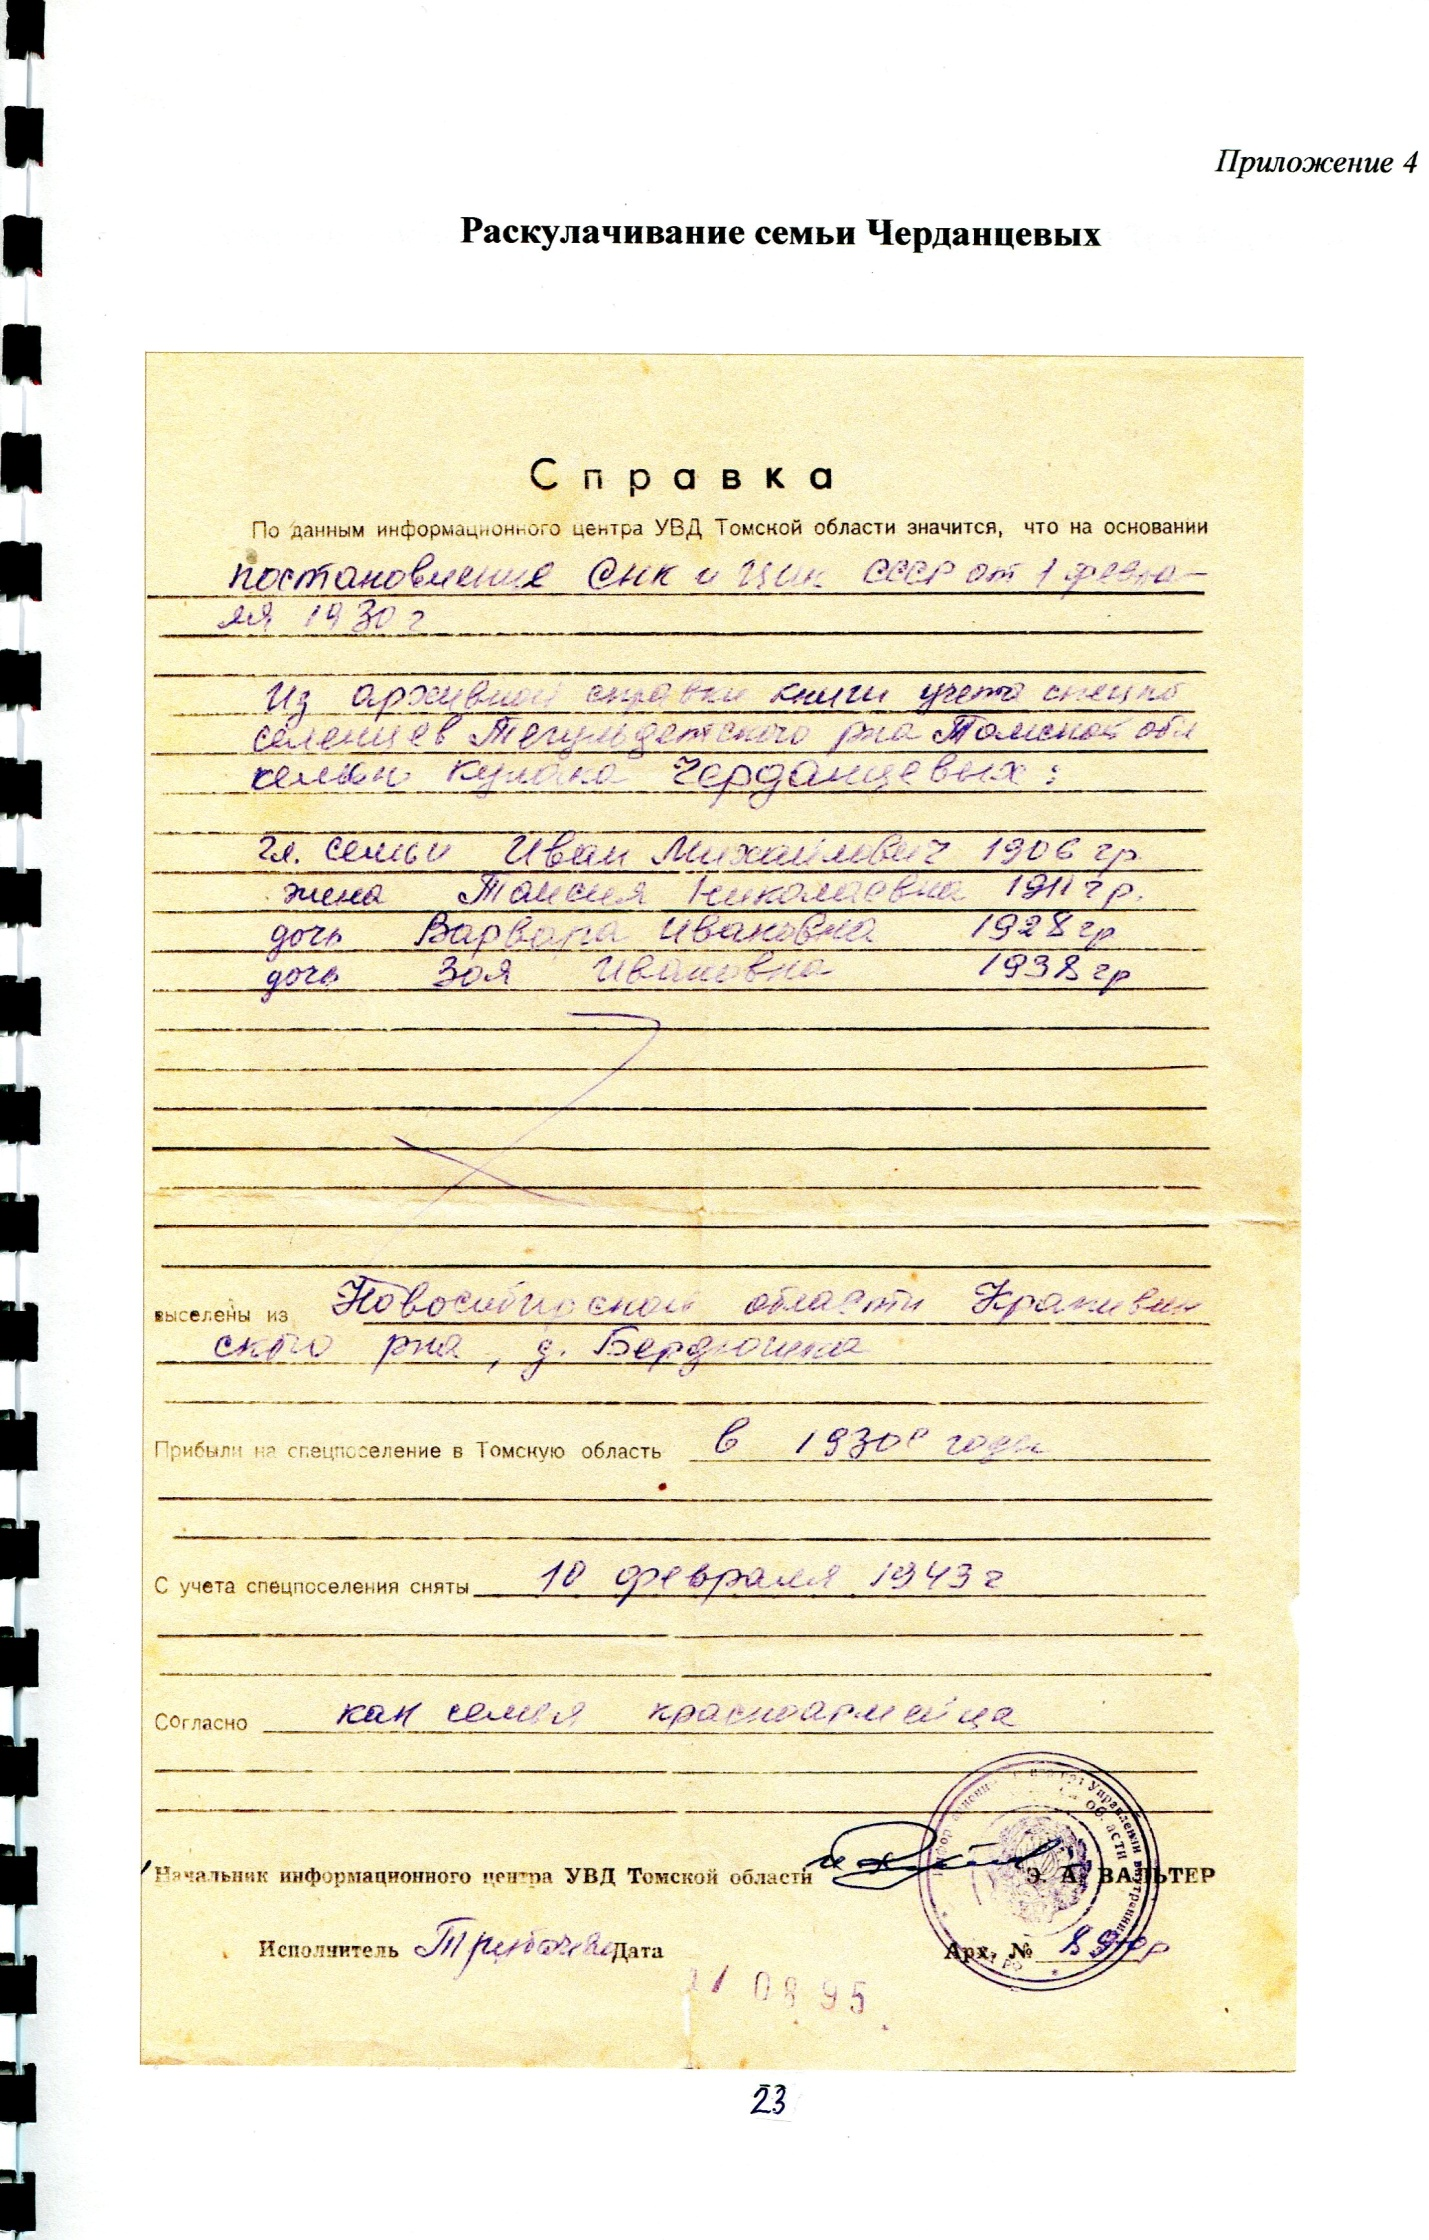 Приложение 4
Раскулачивание семьи Черданцевых
Справка
По данным информационного центра УВД Томской области значится, что на основании
постановление СНК и ЦИК СССР от 1 февра-
ля 1930 г
Из архивной справки книги учета спецпо
селенцев Тегульдетского р-на Томской обл
семью кулака Черданцевых:
гл. семьи Иван Михайлович 1906 гр
жена Таисия Николаевна 1911 гр.
дочь Варвара Ивановна 1928 гр
дочь Зоя Ивановна 1938 гр
выселены из Новосибирской области Крапивин
ского р-на, д. Бердюгина
Прибыли на спецпоселение в Томскую область в 1930е годы
С учета спецпоселения сняты 10 февраля 1943 г
Согласно как семья красноармейца
Начальник информационного центра УВД Томской области Э. А. ВАЛЬТЕР
Исполнитель Трубачева Дата Арх. №
21 08 95
23